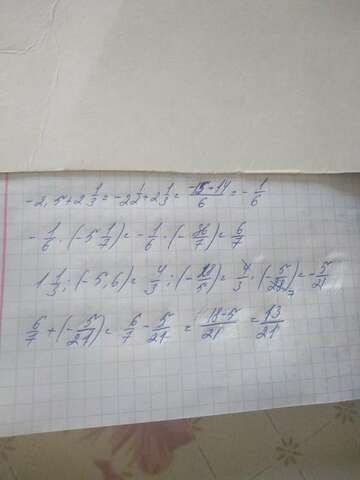 -2,5+2 1/3 = -2 1/2 + 2 1/3 = (-15+14)/6 = - 1/6
- 1/6 · (-5 1/7) = - 1/6 · (- 36/7) = 6/7
1 1/3 : (-5,6) = 4/3 : (- 28/5) = 4/3 · (- 5/28 7) = - 5/21
6/7 + (- 5/21) = 6/7 - 5/21 = (18-5)/21 = 13/21